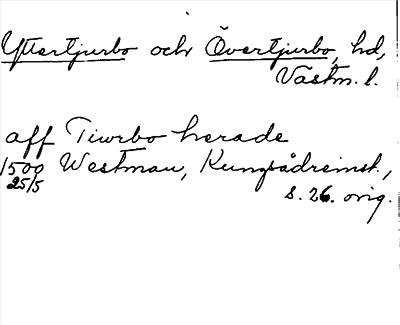 Yttertjurbo och Övertjurbo, hd,
Västm. l.
aff Tiwrbo herade
1500 Westmau, Kungsådreinst.,
25/5
s. 26. orig.